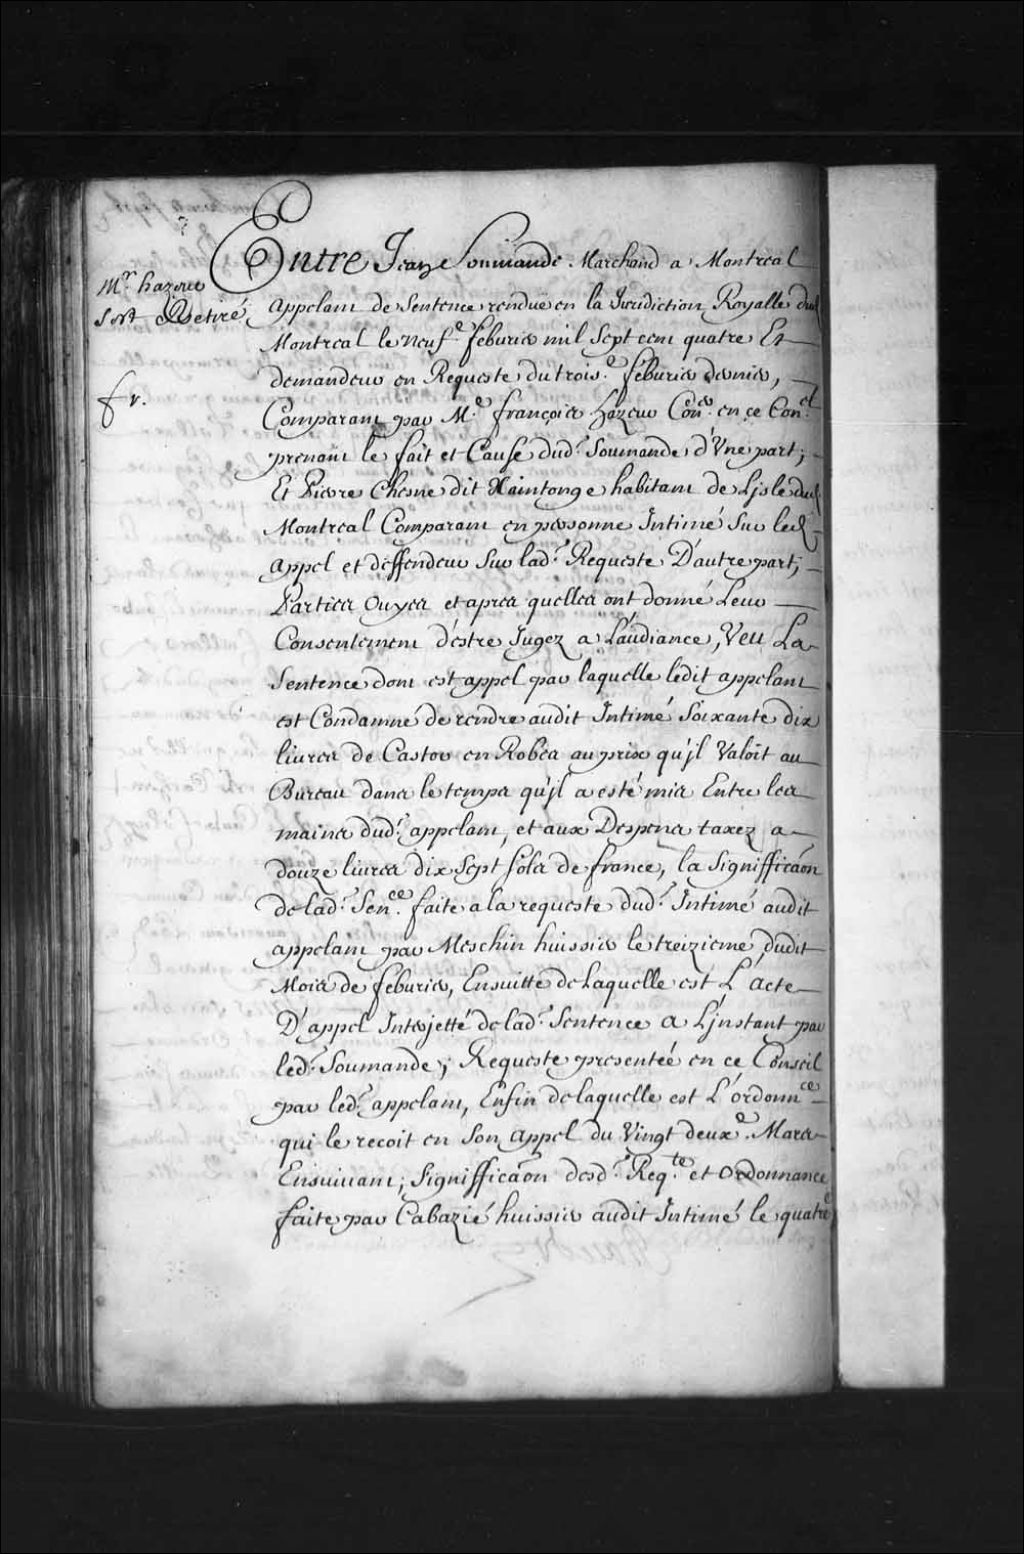 Entre Jean Soumande Marchand a Montreal
Mr. hazeur
sest Retiré
appelant de Sentence rendüe en la Jurisdiction Royalle dud
Montreal le neufe. feburier mil Sept cent quatre Et
demandeur en Requeste du troise. feburier dernier,
fr.
Comparant par Me. françois hazeur Coner. en ce Conel.
prenant le fait et Cause dud. Soumande d'Une part;
Et Pierre Chesne dit Xaintonge habitant de Lisle dud
Montreal Comparant en personne Intimé Sur led.
appel et deffendeur Sur lad. Requeste D'autre part;
Parties Ouyes et apres quelles ont donné Leur
Consentement d'estre Jugez a L'audiance, Veu La
Sentence dont est appel par laquelle ledit appelant
est Condamné de rendre audit Intimé Soixante dix
livres de Castor en Robes au prix qu'jl Valoit au
Bureau dans le temps qu'jl a esté mis Entre les
mains dud. appelant, et aux Despens taxez a
douze livres dix Sept sols de france, la Signifficaon
de lad. Sence. faite a la requeste dud. Intimé audit
appelant par Meschin huissier le treizieme dudit
Mois de feburier, Ensuitte de Laquelle est L'acte
D'appel Interjetté de lad. Sentence a L'jnstant par
led. Soumande; Requeste presentée en ce Conseil
par led. appelant, Enfin de laquelle est L'ordonnce.
qui le recoit en Son appel du Vingt deuxe. Mars
Ensuivant; Signifficaon desd. Reqte. et Ordonnance
faite par Cabazié huissier audit Intimé le quatre